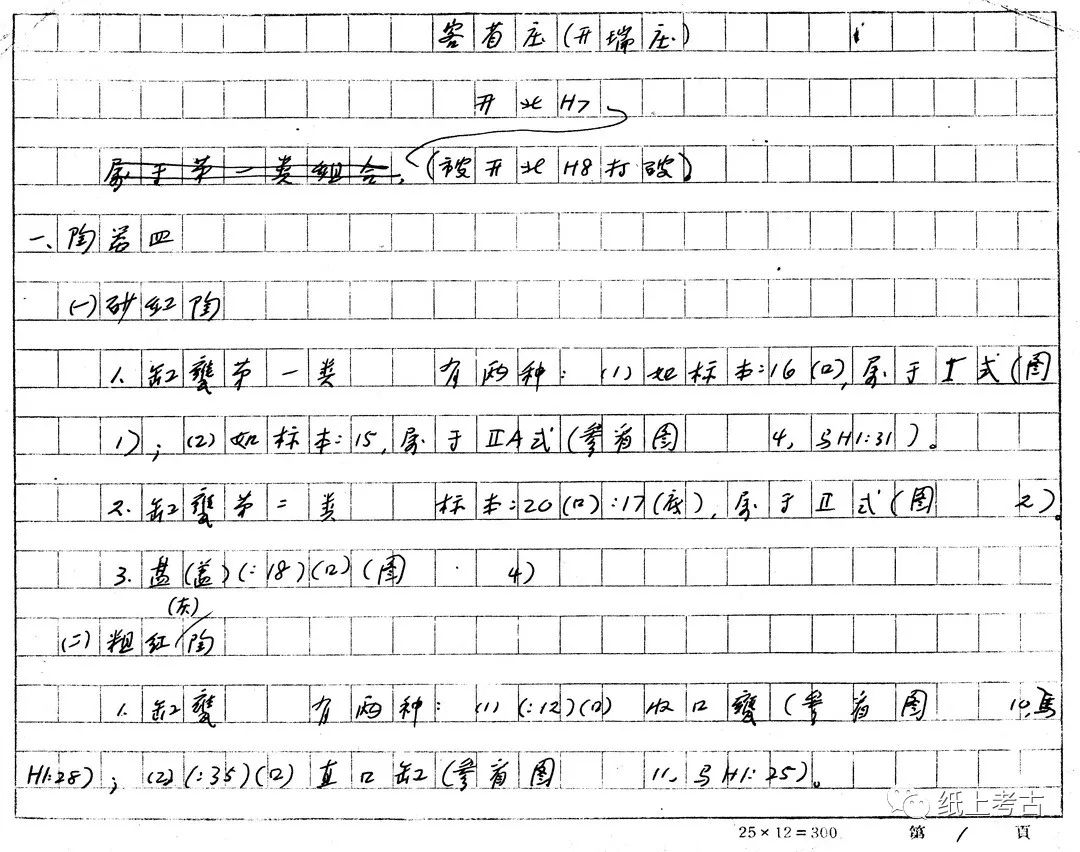 客省庄(开瑞庄)
开北H7
属于第一类组合,(被开北H8打破)
一、陶器四
(一)砂红陶
1. 缸瓮第一类 有两种:(1)如标本:16(口),属于I式(图
1);(2)如标本:15,属于ⅡA式(参看图 4,马H1:31)。
2. 缸瓮第二类 标本:20(口):17(底),属于Ⅱ式(图 2)。
3. 盖(盖)(:18)(口)(图 4)
(灰)
(二)粗红陶
1. 缸瓮 有两种:(1)(:12)(口)收口瓮(参看图 10,馬
H1:28);(2)(:35)(口)直口缸(参看图 11,马H1:25)。
纸上考古
25×12=300 第 1 頁